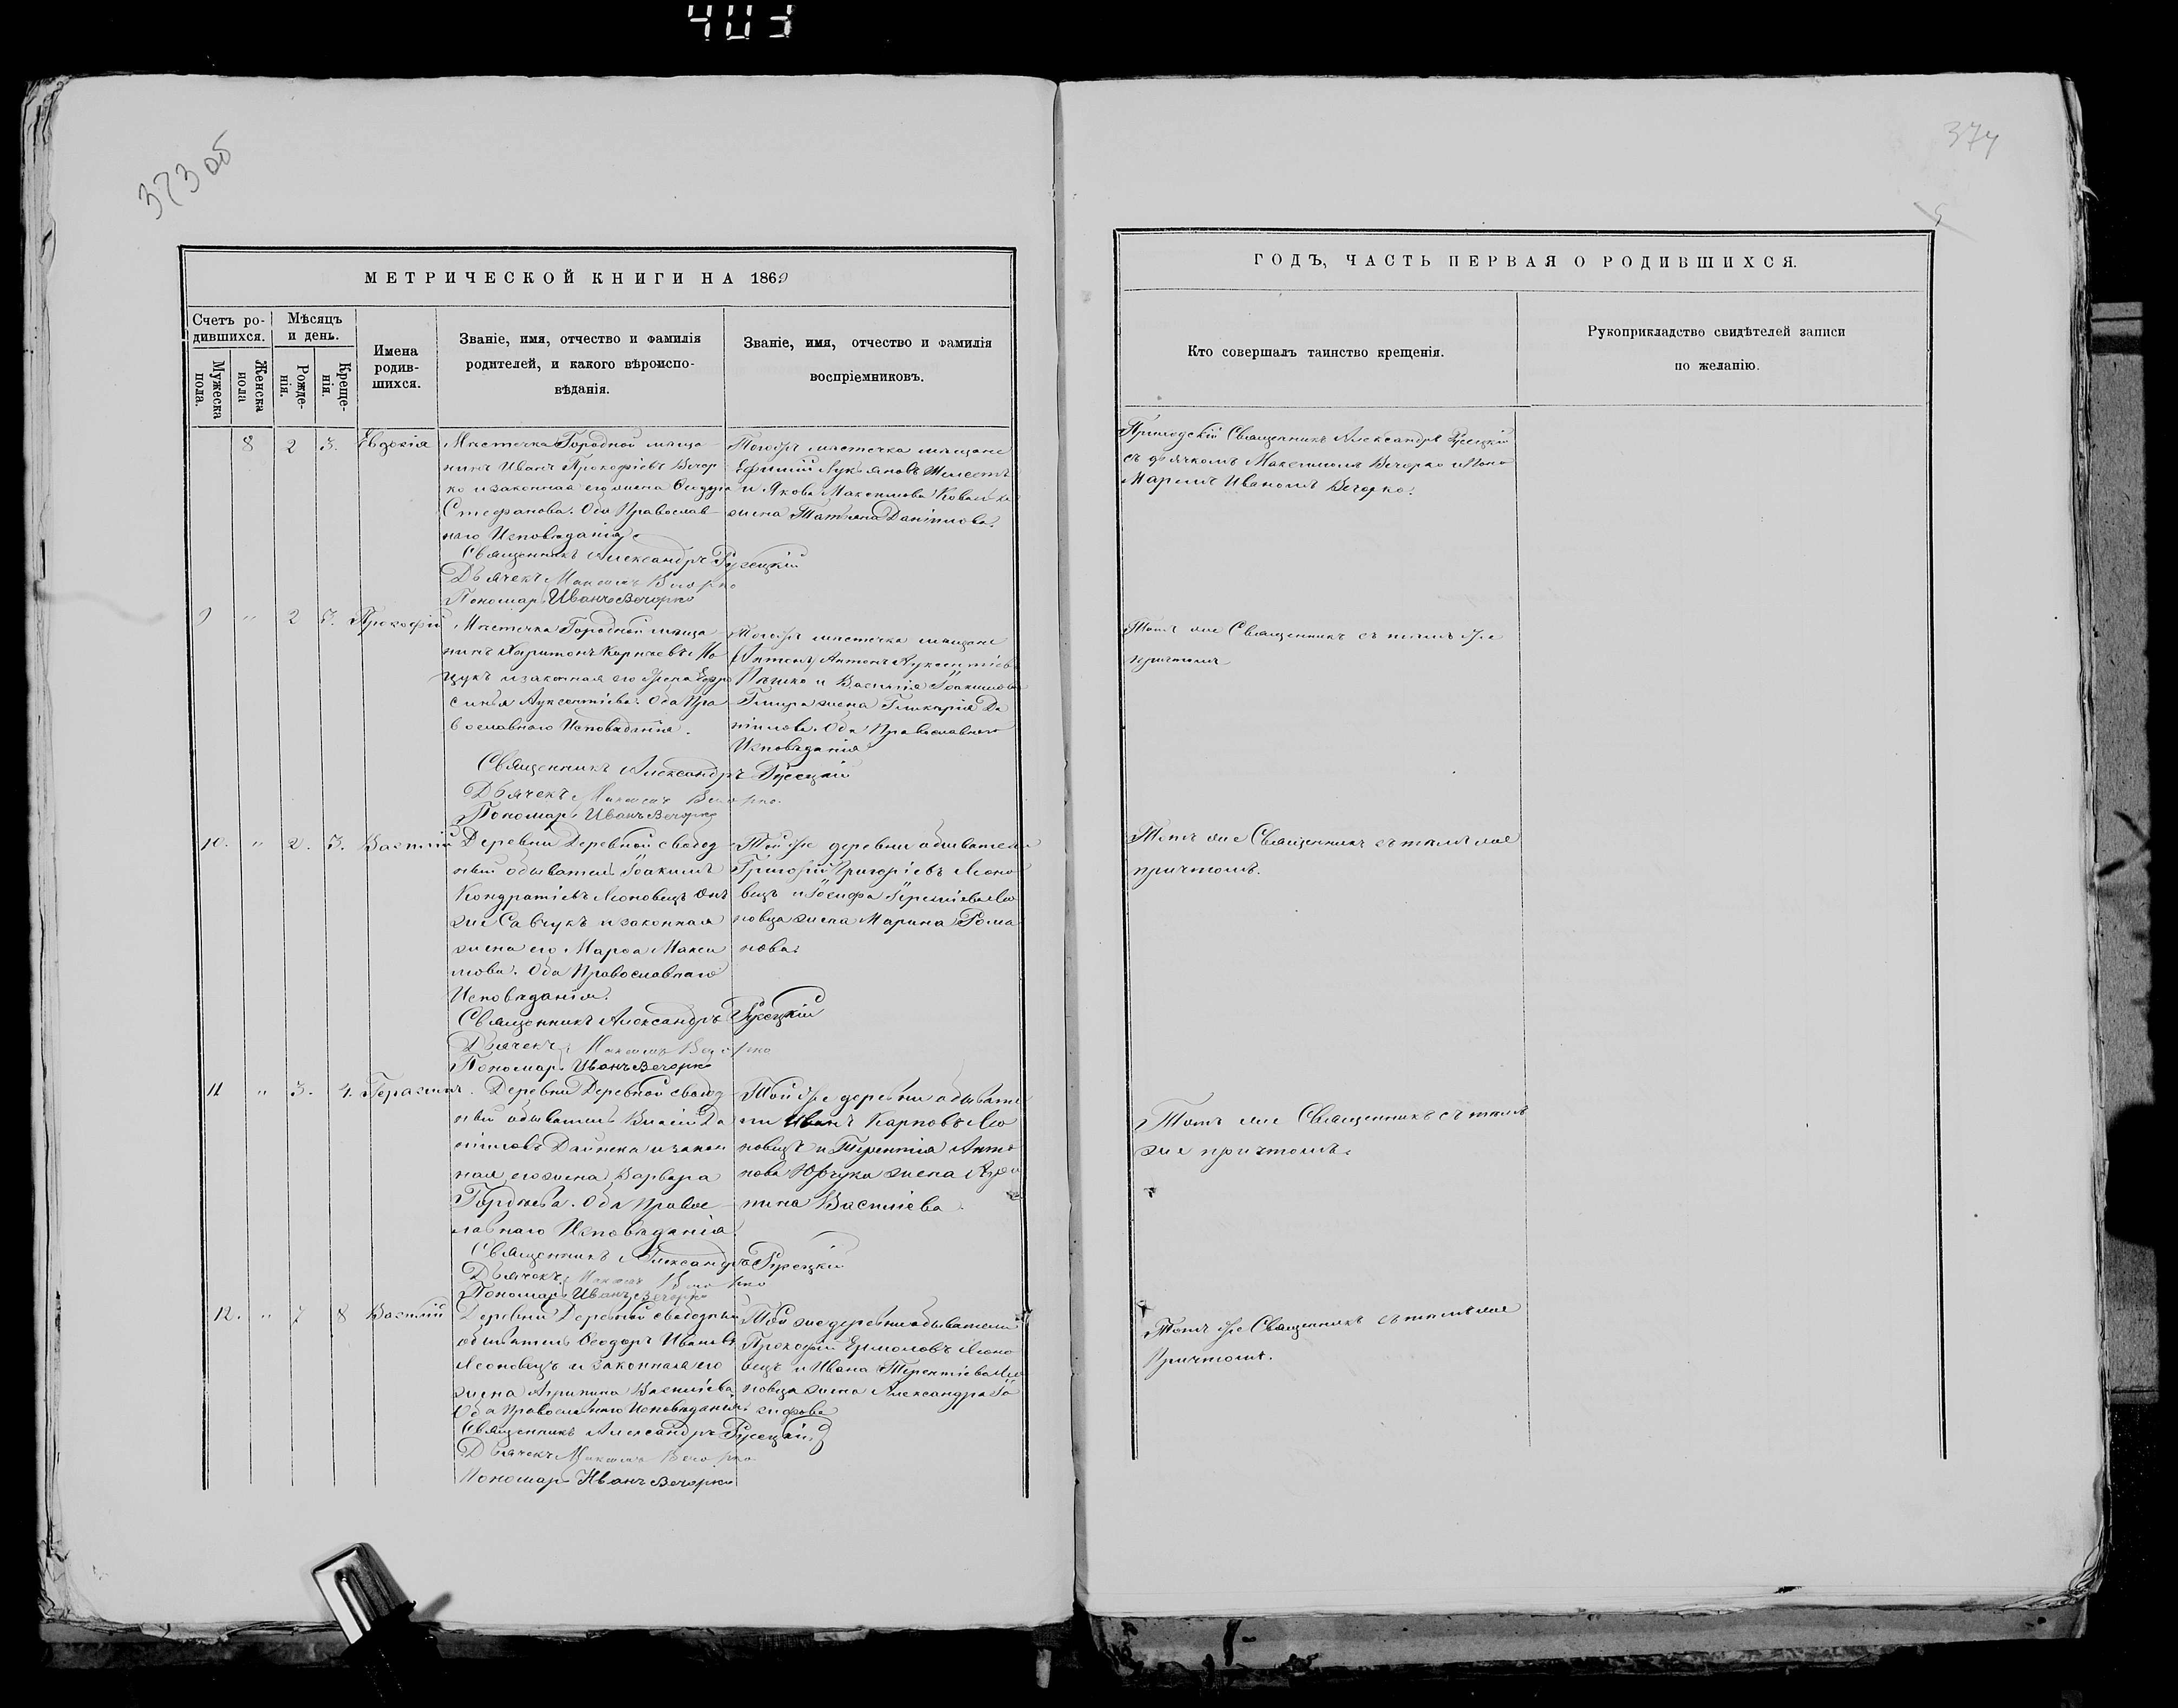 403
373 об
374
5
МЕТРИЧЕСКОЙ КНИГИ НА 1869
Счетъ ро-
дившихся.
Мужеска
пола.
Женска
пола
Мѣсяцъ
и день.
Рожде-
нія.
Креще-
нія.
Имена
родив-
шихся.
Званіе, имя, отчество и фамилія
родителей, и какого вѣроиспо-
вѣданія.
Званіе, имя, отчество и фамилія
воспріемниковъ.
8 2 3. Евдокія
Мѣстечка Городной мѣща-
нинъ Иванъ Прокофіевъ Вечор
ко и законная его жена
Стефанова. Оба Православ-
наго Исповѣданія.
Священникъ Александръ Русецкій
Дьячекъ Максимъ Вечорко
Пономарь Иванъ Вечорко
Тогожъ мѣстечка мѣщане
Ефимій Лукьяновъ
и Якова Максимова
жена Татьяна Даніилова.
9 " 2 3. Прокофій
Мѣстечка Городной мѣща-
нинъ Харитонъ Корнѣевъ
цукъ и законная его жена Евфро
синья Авксентіева. Оба Пра
вославнаго Исповѣданія.
Священникъ Александръ Русецкій
Дьячекъ Максимъ Вечорко.
Пономарь Иванъ Вечорко
Тогожъ мѣстечка мѣщане
Антонъ Авксентіевъ
и Василія Іоакимова
жена Гликерія Да
ніилова. Оба Православнаго
Исповѣданія
10. " 2. 3. Василій
Деревни Деревной свобод
ный обыватель Іоакимъ
Кондратіевъ Леоновецъ онъ
же Савчукъ и законная
жена его Марѳа Макси
мова. Оба Православнаго
Исповѣданія.
Священникъ Александръ Русецкій
Дьячекъ Максимъ Вечорко
Пономарь Иванъ Вечорко
Той же деревни обыватели
Григорій Григоріевъ Леоно
вецъ и Іосифа Лео
новца жена Марина Рома
нова.
11 " 3. 4. Герасимъ.
Деревни Деревной свобод
ный обыватель Власій Да
ніиловъ Дайнека и закон
ная его жена Варвара
Гордѣева. Оба Правос-
лавнаго Исповѣданія.
Священникъ Александръ Русецкій
Дьячекъ Максимъ Вечорко
Пономарь Иванъ Вечорко
Той же деревни обывате
ли Иванъ Карповъ Лео
новецъ и Терентія Анто
нова Юрчука жена Агри
пина Василіева
12. " 7 8 Василій
Деревни Деревной свободный
обыватель Ѳеодоръ Ивановъ
Леоновецъ и законная его
жена Агрипина Василіева
Оба Православнаго Исповѣданія.
Священникъ Александръ Русецкій
Дьячекъ Максимъ Вечорко
Пономарь Иванъ Вечорко
Той же деревни обыватели
Прокофій Ермоловъ Леоно
вецъ и Ивана Терентіева Лео
новца жена Александра Іо
сифова
ГОДЪ, ЧАСТЬ ПЕРВАЯ О РОДИВШИХСЯ.
Кто совершалъ таинство крещенія.
Рукоприкладство свидѣтелей записи
по желанію.
Приходскій Священникъ Александръ Русецкій
съ дьячкомъ Максимомъ Вечорко и Поно
маремъ Иваномъ Вечорко.
Тотъ же Священникъ съ тѣмъ же
причтомъ
Тотъ же Священникъ съ тѣмъ же
причтомъ.
Тотъ же Священникъ съ тѣмъ
же причтомъ.
Тотъ же Священникъ съ тѣмъ же
Причтомъ.